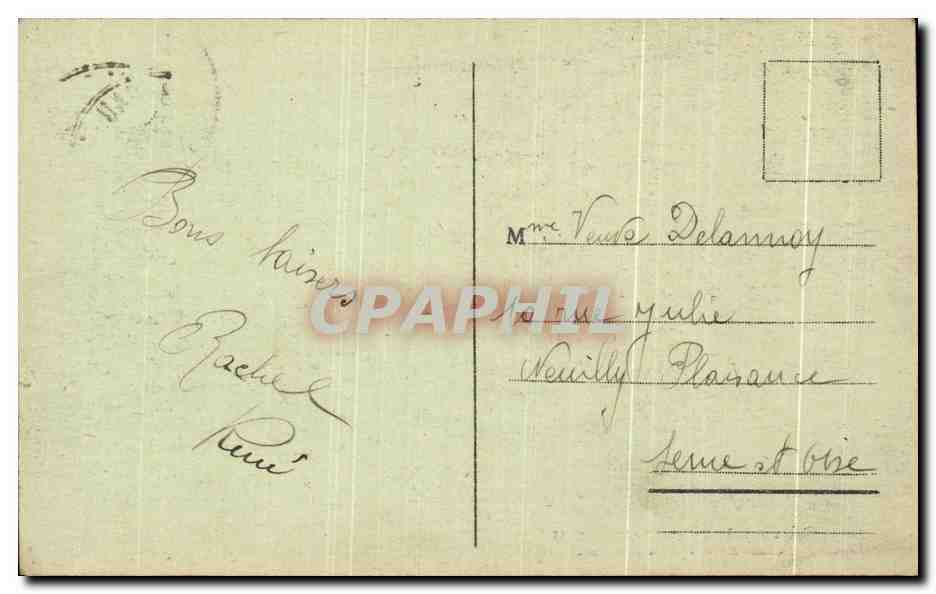 Bons baisers
Rachel
René
Mme Veuve Delannoy
10 rue Julie
Neuilly Plaisance
Seine et Oise
CPAPHIL